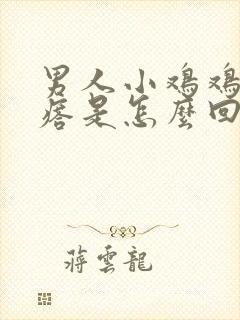 男人小鸡鸡
痞是怎麼回
蔣雲龍